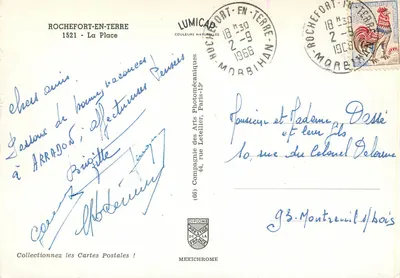 ROCHEFORT-EN-TERRE
1521 - La Place
LUMICAP
COULEURS NATURELLES
ROCHEFORT-EN-TERRE
18H30
2-9
1966
MORBIHAN
ROCHEFORT-EN-TERRE
18H30
2-9
MORBIHAN
Chers amis.
de bonnes vacances
à ARRADON, affectueuses Pensées
Brigitte
Monsieur et Madame Dassé
et leur fils
10, rue du Colonel Delorme
93-Montreuil s/bois
(65) Compagnie des Arts Photomécaniques
44, rue Letellier, Paris-15e
Collectionnez les Cartes Postales !
MEXICHROME